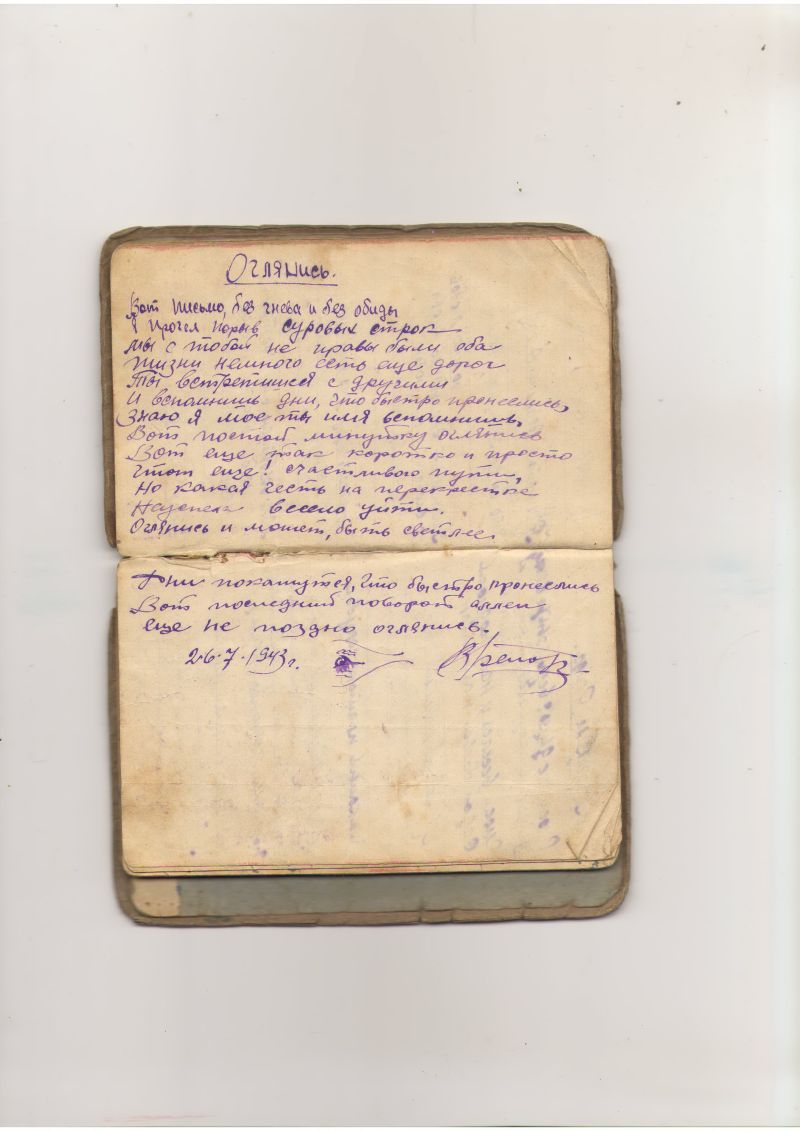 Оглянись.
Вот письмо, без гнева и без обиды
Я прочел порыв суровых строк
Мы с тобой не правы были оба
Жизни немного есть еще дорог
Ты встретишися с другими
И вспомнишь дни, что быстро пронеслись,
Знаю я мое ты имя вспомнишь,
Вот постой минутку оглянись
Вот еще так коротко и просто
Чтож еще! счастливого пути,
Но какая честь на перекрестке
весело уйти.
Оглянись и может, быть светлее
Дни покажутся, что быстро, пронеслись
Вот последний поворот аллеи
еще не поздно оглянись.
26.7.1943 г.